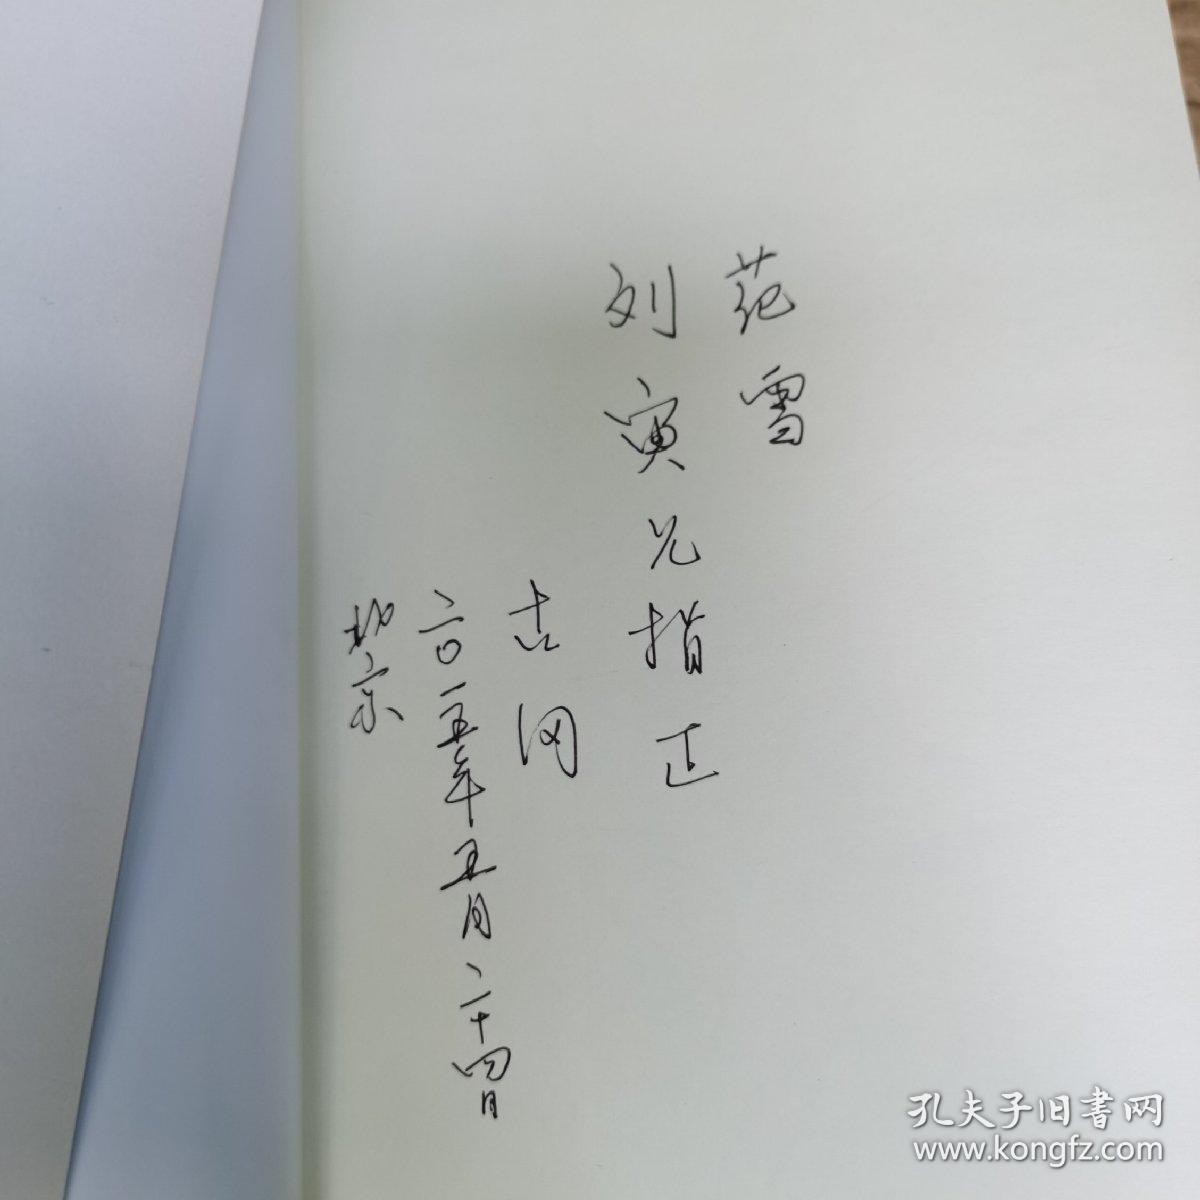 范雪
刘寅兄指正
古冈
二〇一五年五月二十四日
北京
孔夫子旧书网
www.kongfz.com